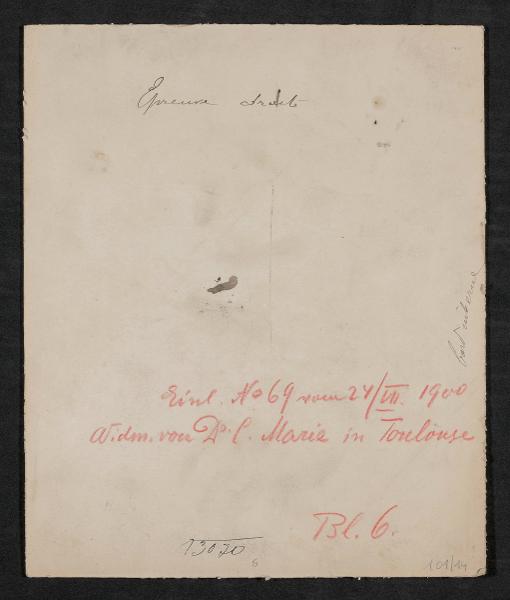 Epreuve droit
bord interne
Einl. No 69 vom 24/VII. 1900
Widm. von Dr. C. Marie in Toulouse
Bl. 6.
13070
8
101/14